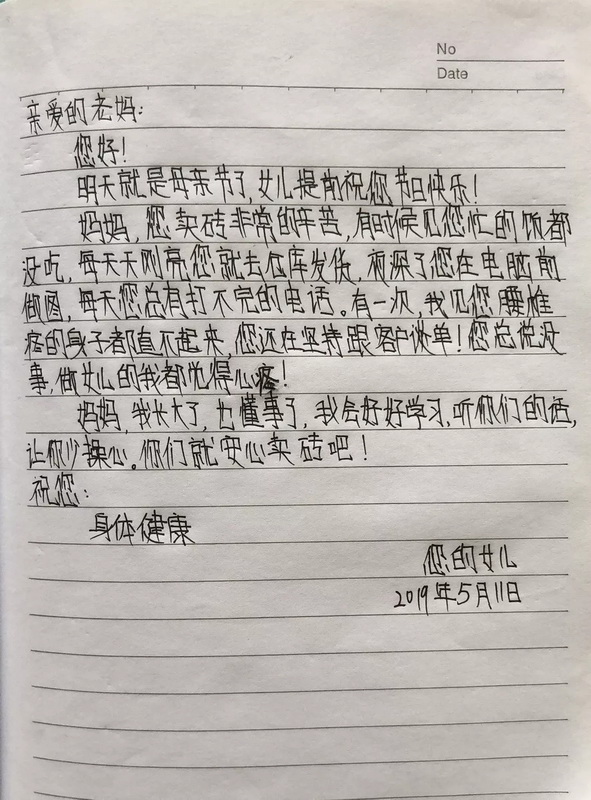 No
Date
亲爱的老妈:
您好!
明天就是母亲节了,女儿提前祝您节日快乐!
妈妈,您卖砖非常的辛苦,有时候见您忙的饭都
没吃,每天天刚亮您就去仓库发货,夜深了您在电脑前
做图,每天您总有打不完的电话。有一次,我见您腰椎
疼的身子都直不起来,您还在坚持跟客户谈单!您总说没
事,做女儿的我都觉得心疼!
妈妈,我长大了,也懂事了,我会好好学习,听你们的话,
让你少操心。你们就安心卖砖吧!
祝您:
身体健康
您的女儿
2019年5月11日